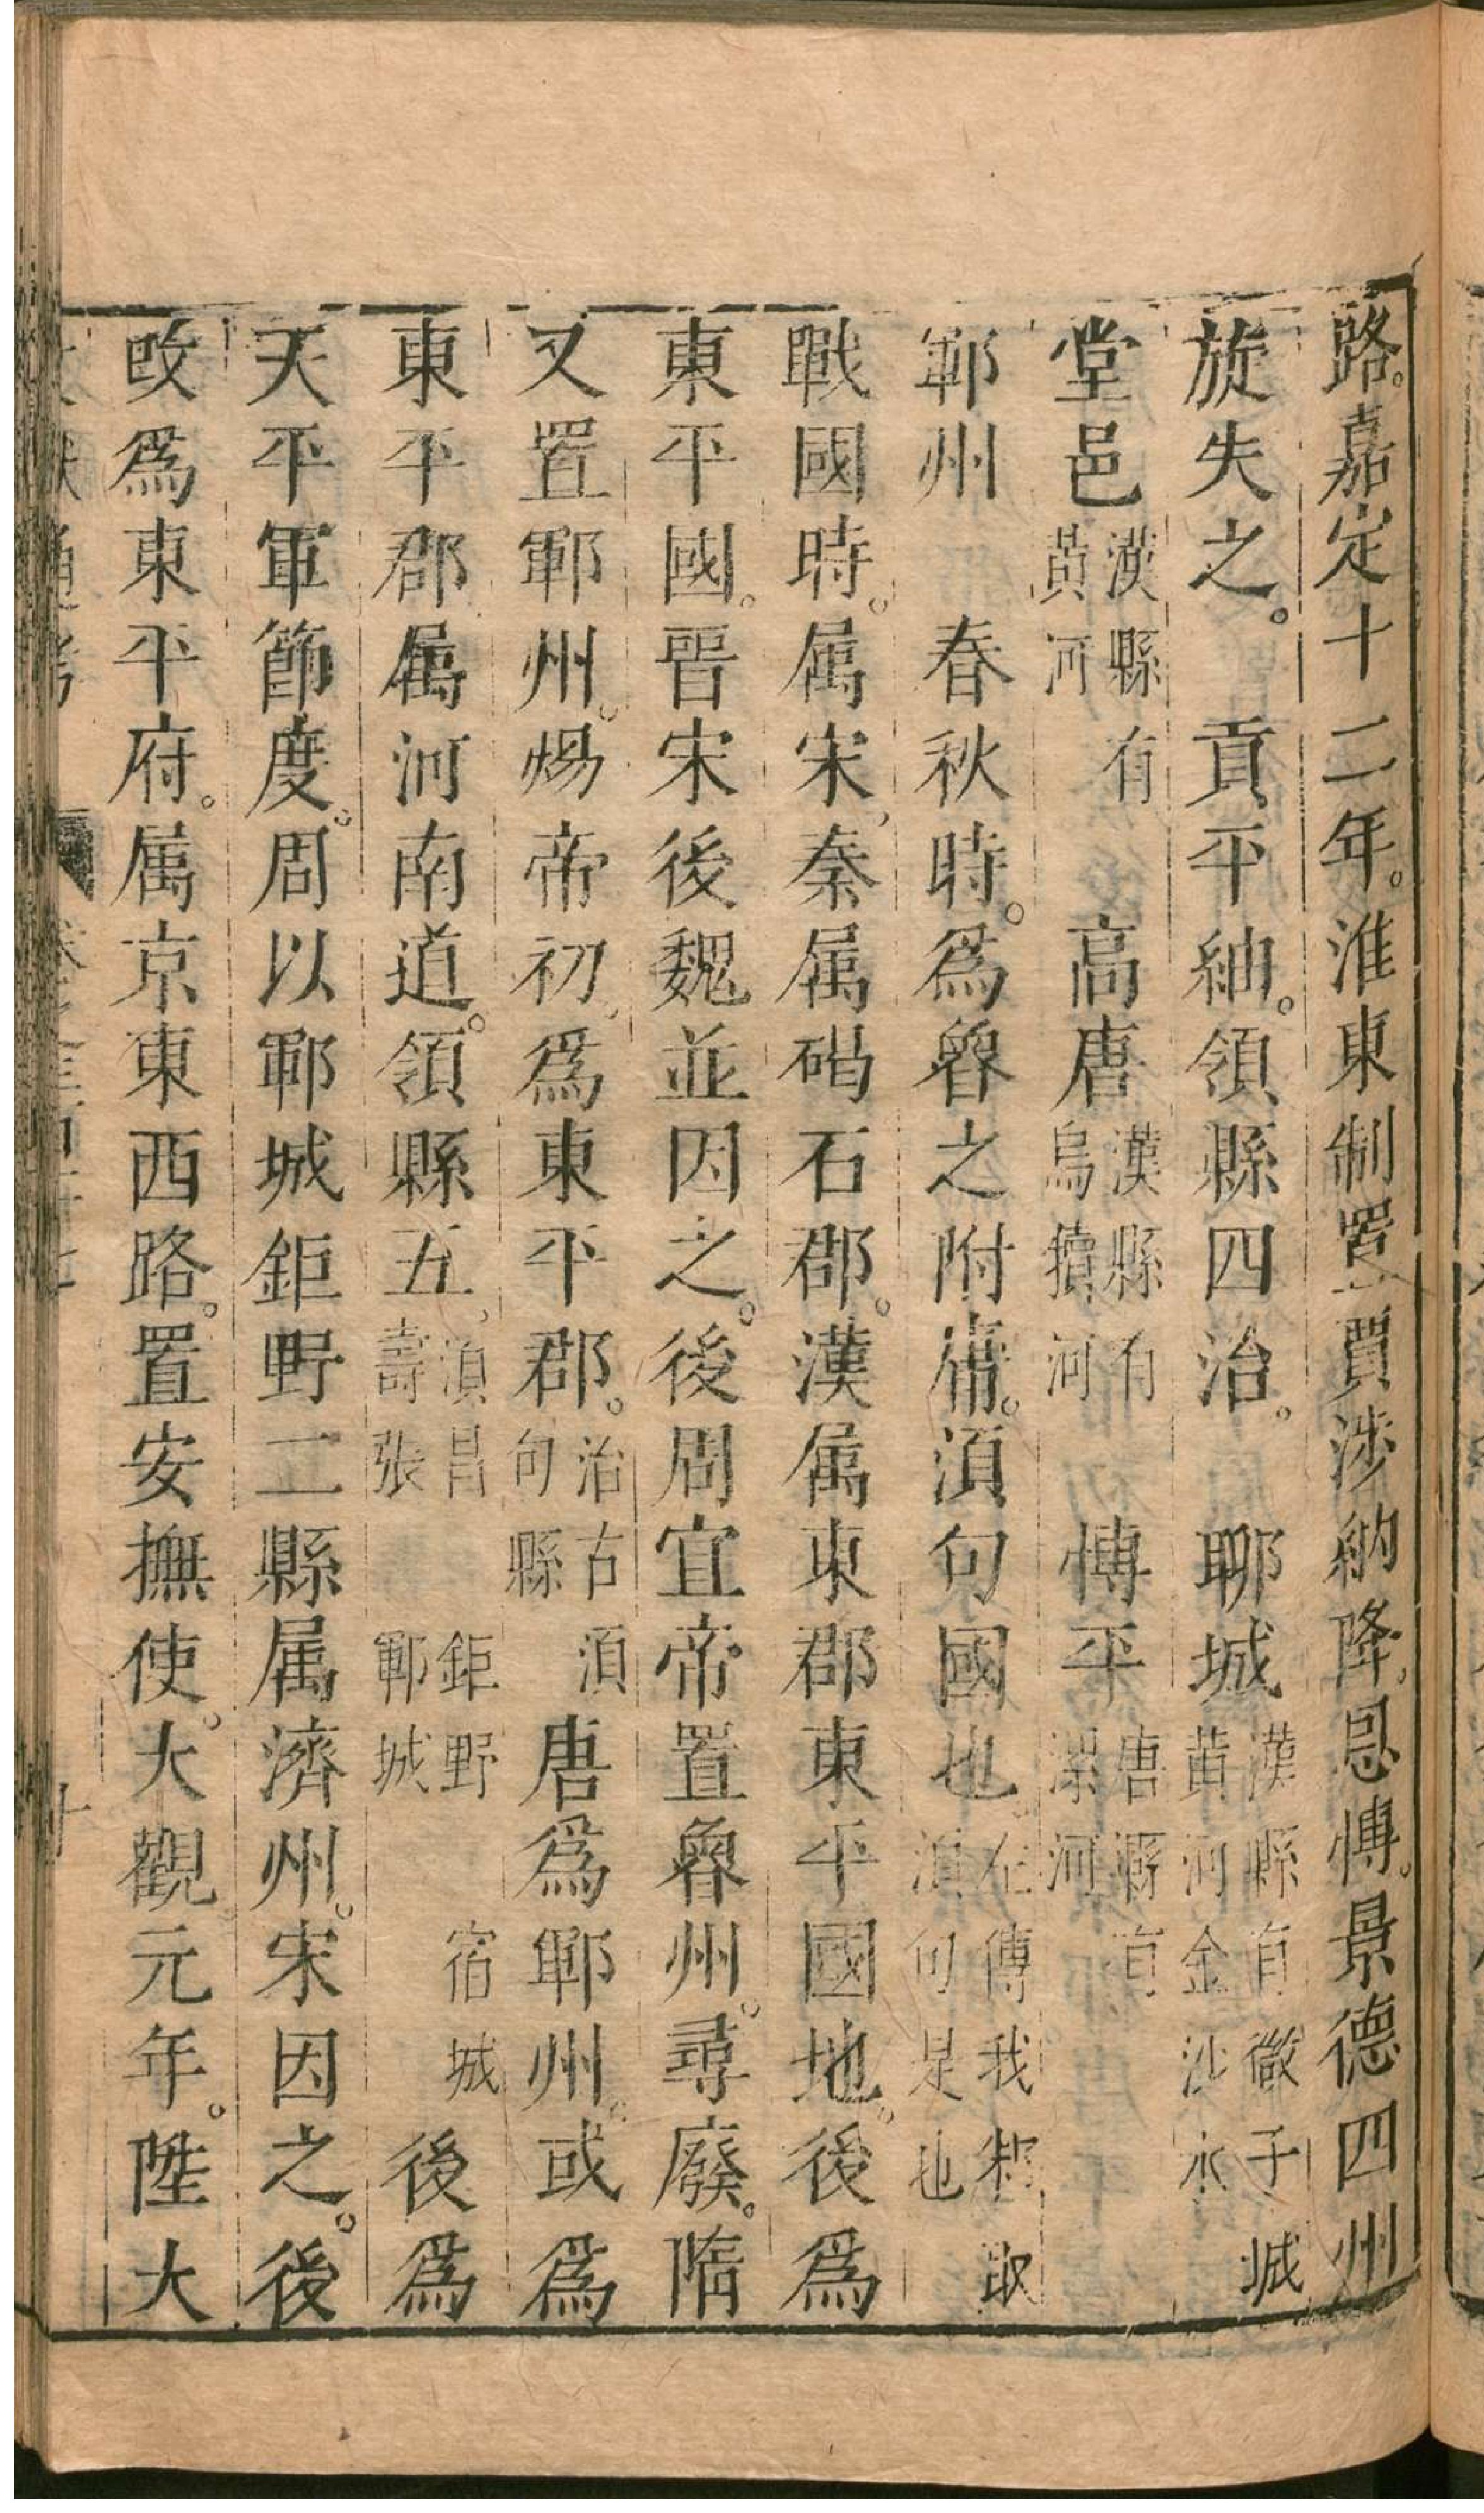 路。嘉定十二年。淮東制置賈涉納降恩博。景德四州
旋失之。　貢平紬。領縣四治。　聊城漢縣有微子城黄河金沙水
堂邑漢縣有黄河　高唐漢縣有烏犢河　博平唐縣有漯河
鄆州　春秋時。爲魯之附庸。湏句國也。左傳我邾取湏句是也
戰國時。属宋。秦属碣石郡。漢属東郡東平國地。後爲
東平國。晋宋後魏並因之。後周宣帝置魯州。尋廢。隋
又置鄆州。煬帝初。爲東平郡。治古湏句縣　唐爲鄆州。或爲
東平郡属河南道。領縣五。湏昌壽張　鉅野鄆城　宿城　後爲
天平軍節度。周以鄆城鉅野二縣属濟州。宋因之。後
改爲東平府。属京東西路。置安撫使。大觀元年。陞大